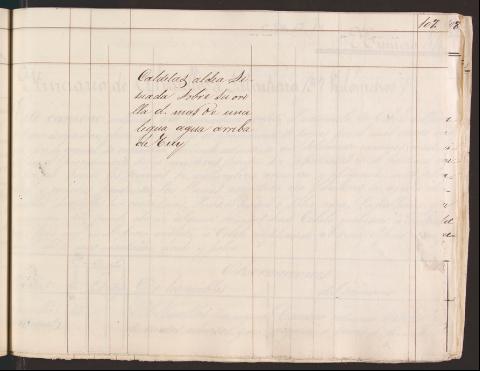 107.
Caldelas aldea si-
tuada sobre su ori-
lla d. mas de una
legua agua arriba
de Tuy